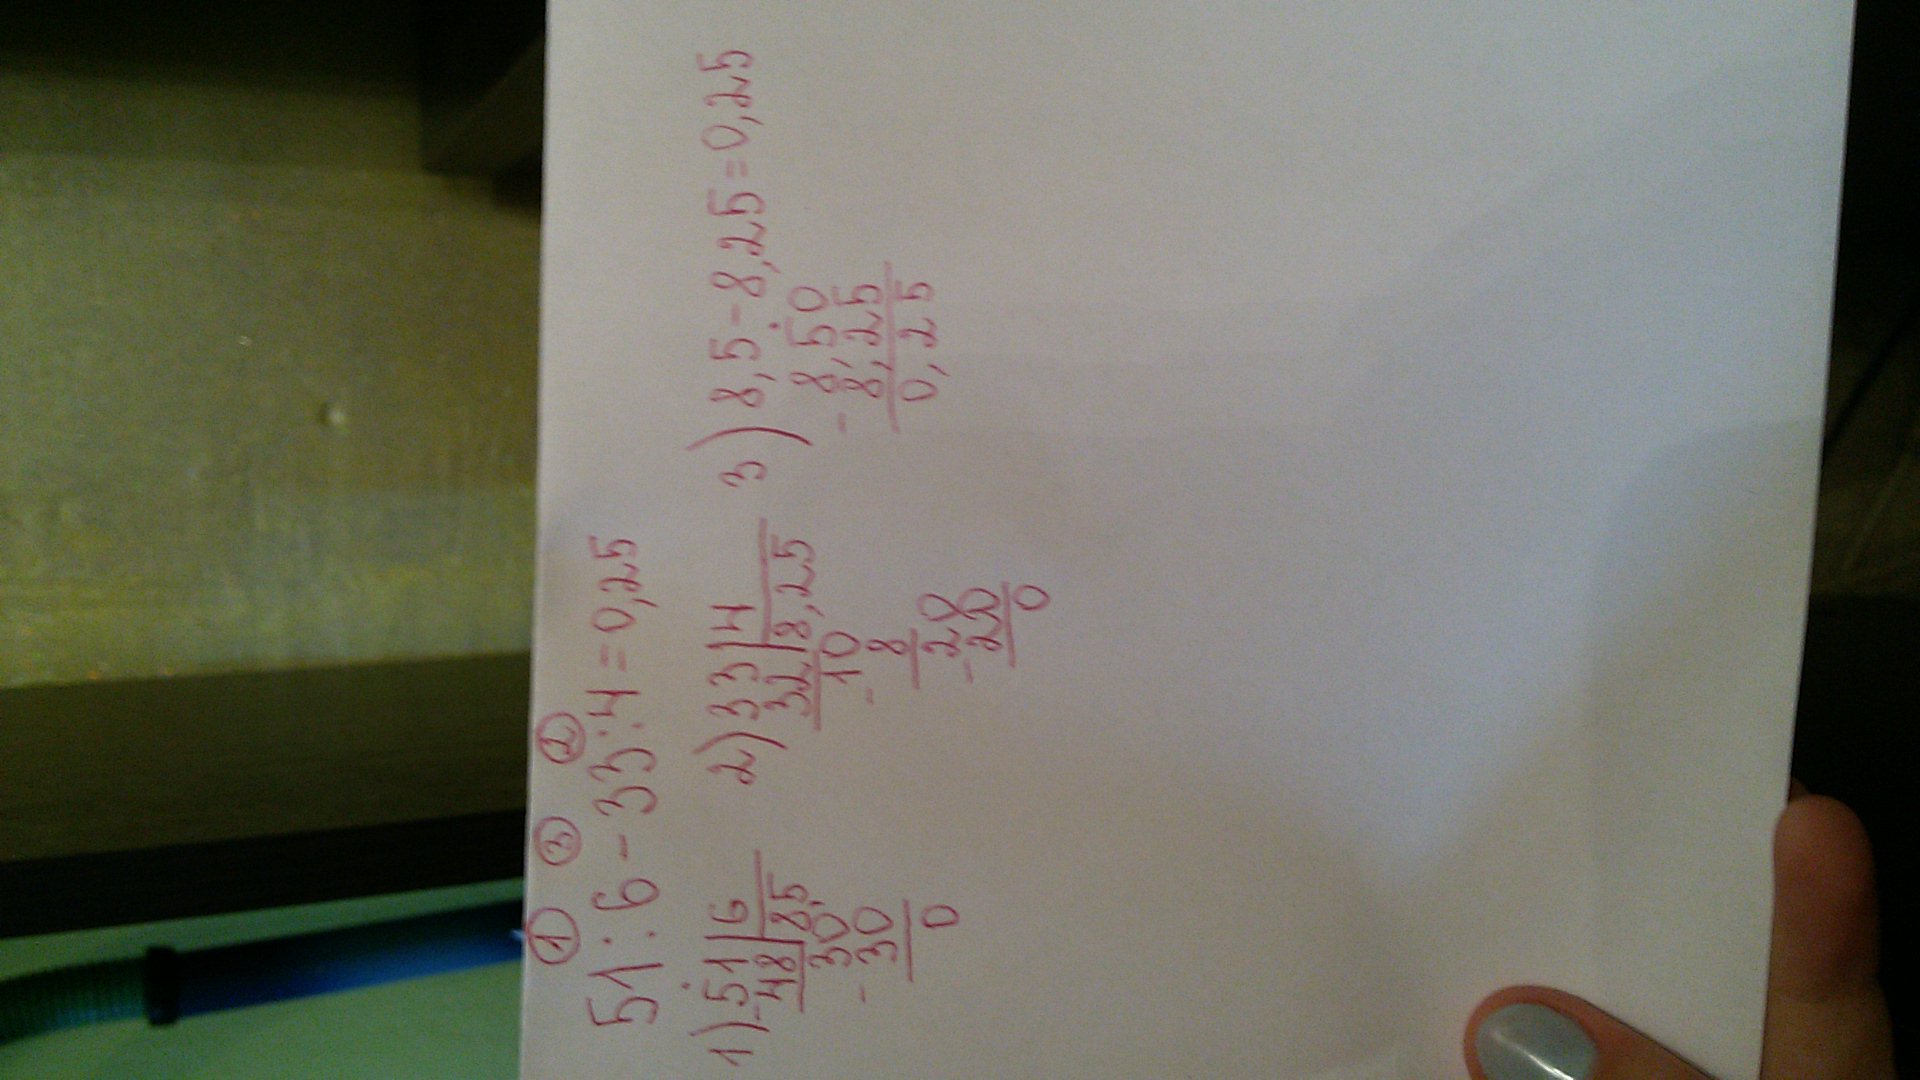 ① ③ ②
51:6-33:4=0,25
1) 51|6 2) 33|4 3) 8,5-8,25=0,25
-48|8,5 32|8,25 8,50
30 10 -8,25
-30 -8 0,25
0 20
-20
0